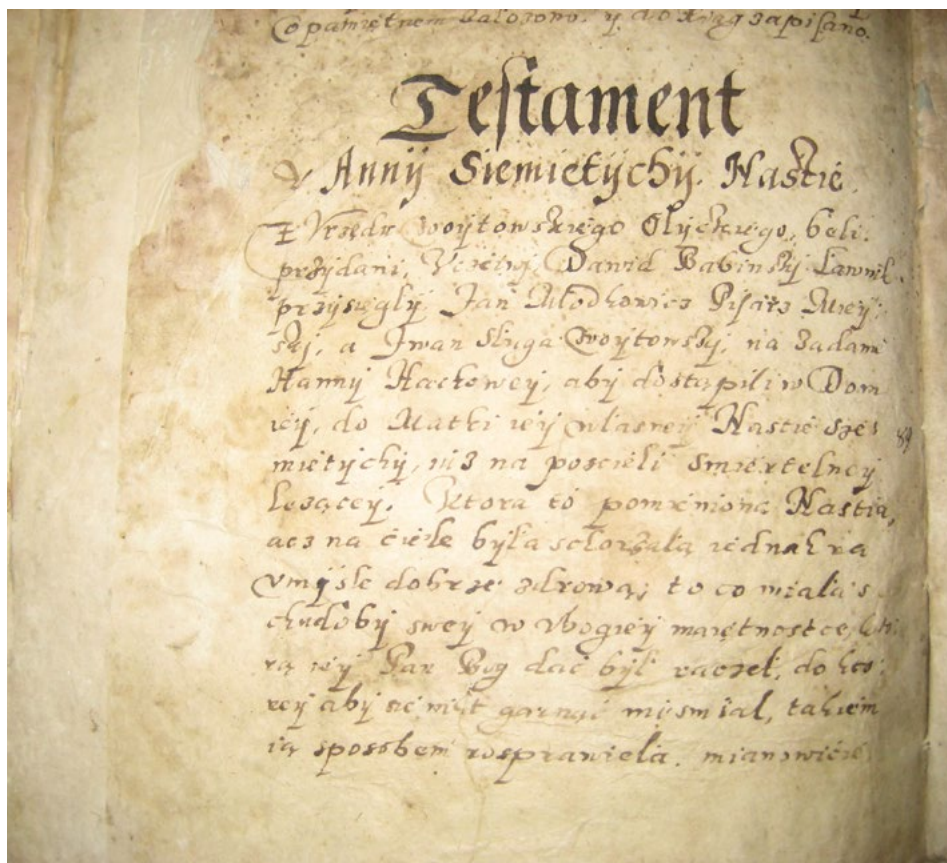 pamiętnem założono, y do xiąg zapisano.
Testament
Annÿ Siemietÿchÿ. Nastie.
Z Vrzędu woÿtowskiego Olÿckiego, beli
przÿdani, Dawid Babinskÿ Lawnik
przÿsięglÿ, Jan Mlodkowicz Pisarz Mieÿ
skÿ, a Jwan sluga woÿtowskÿ, na żądanie
Hannÿ Hackoweÿ, abÿ dostąpili w Dom
ieÿ, do Matki ieÿ wlasneÿ Nastie Sze
mietÿchÿ, iuż na poscieli smiertelneÿ
leżąceÿ. Ktora to pomieniona Nastia,
acz na ciele bÿla schorzalą iednak na
vmÿsle dobrze zdrową, to co miala s
chudobÿ sweÿ w vbogieÿ maiętnostce, kto
rą ieÿ Pan Bog dać bÿl raczel, do kto
reÿ abÿ się nikt garnąć nÿ smial, takiem
ią sposobem rosprawiela. mianowicie
89